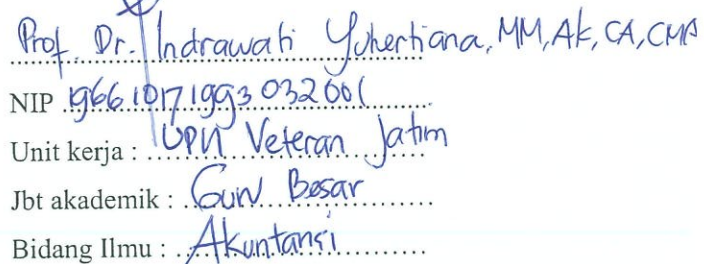 Prof. Dr. Indrawati Yuhertiana, MM, Ak, CA, CMA
NIP 196610171993032001
Unit kerja : UPN Veteran Jatim
Jbt akademik : Guru Besar
Bidang Ilmu : Akuntansi